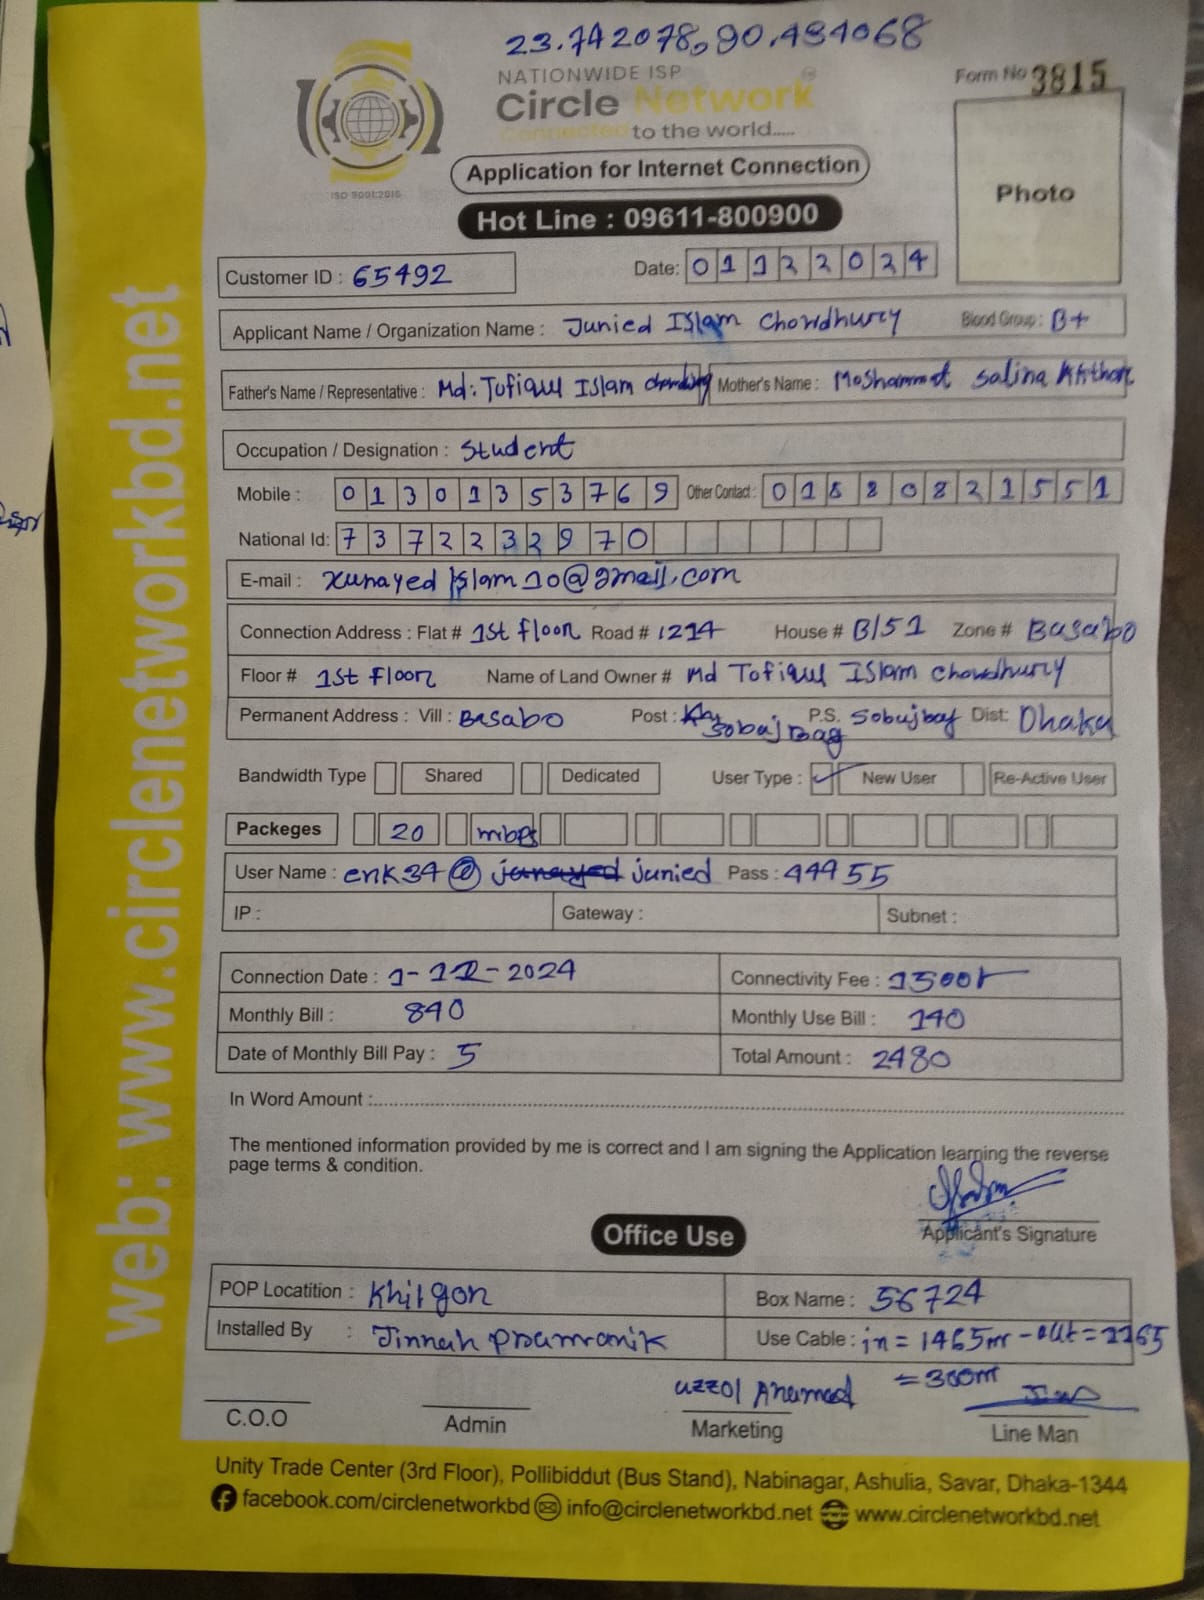 23.742078,90.434068
NATIONWIDE ISP
Circle Network
Connected to the world.....
ISO 9001:2015
Form No 3815
Photo
Application for Internet Connection
Hot Line : 09611-800900
Customer ID : 65492
Date: 01122024
Applicant Name / Organization Name : Junied Islam Chowdhury Blood Group : B+
Father's Name / Representative : Md: Tofiqul Islam Mother's Name : Moshammat Salina
Occupation / Designation : Student
Mobile : 01301353769 Other Contact : 01880821551
National Id: 7372232970
E-mail : xunayed Islam10@gmail.com
Connection Address : Flat # 1st floor Road # 1214 House # B/51 Zone # Basabo
Floor # 1st Floor Name of Land Owner # Md Tofiqul Islam Chowdhury
Permanent Address : Vill : Basabo Post : Sobuj Bag P.S. Sobujbag Dist: Dhaka
Bandwidth Type Shared Dedicated User Type : ✓ New User Re-Active User
Packeges 20 mbps
User Name : enk34@ junied Pass : 44455
IP : Gateway : Subnet :
Connection Date : 1-12-2024 Connectivity Fee : 1500
Monthly Bill : 840 Monthly Use Bill : 140
Date of Monthly Bill Pay : 5 Total Amount : 2480
In Word Amount :
The mentioned information provided by me is correct and I am signing the Application learning the reverse
page terms & condition.
Applicant's Signature
Office Use
POP Locatition : Khilgon Box Name : 56724
Installed By : Jinnah Pramranik Use Cable : in = 1465m - out = 1165
= 300m
Uzzol Ahamed
C.O.O Admin Marketing Line Man
Unity Trade Center (3rd Floor), Pollibiddut (Bus Stand), Nabinagar, Ashulia, Savar, Dhaka-1344
facebook.com/circlenetworkbd info@circlenetworkbd.net www.circlenetworkbd.net
web: www.circlenetworkbd.net